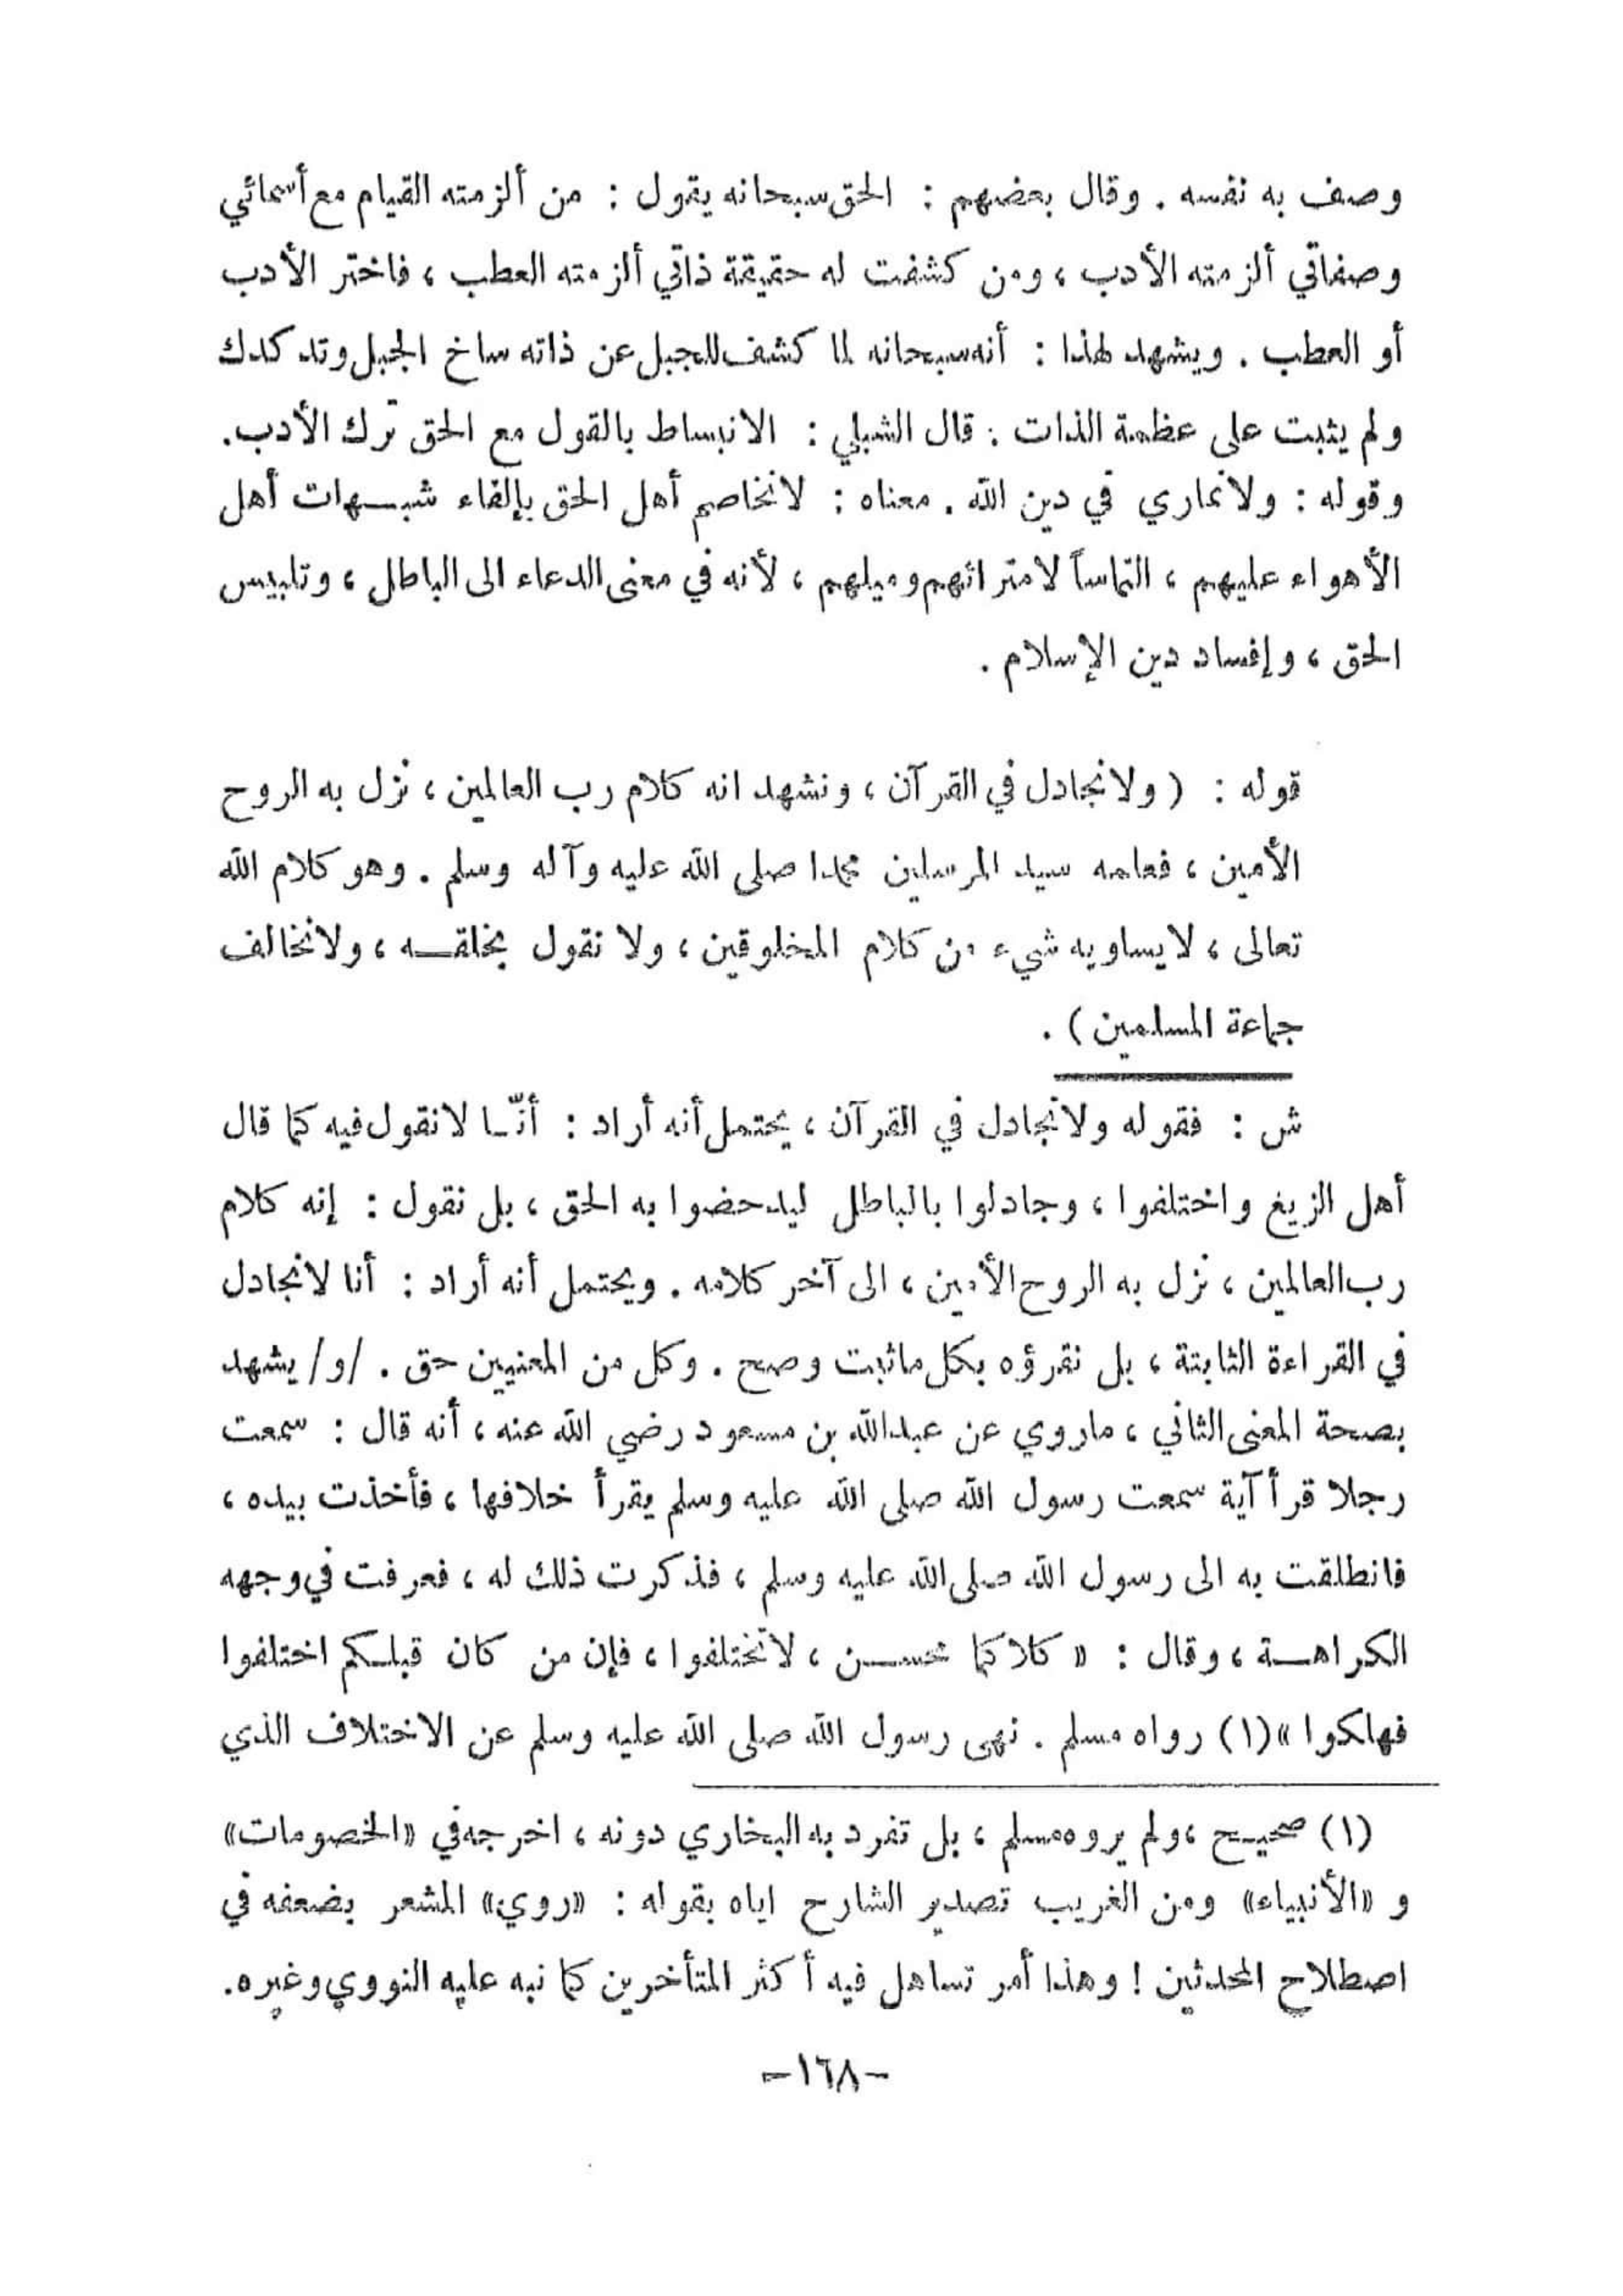 وصف به نفسه . وقال بعضهم : الحق سبحانه يقول : من ألزمته القيام مع أسمائي
وصفاتي ألزمته الأدب ، ومن كشفت له حقيقة ذاتي ألزمته العطب ، فاختر الأدب
أو العطب . ويشهد لهذا : أنه سبحانه لما كشف للجبل عن ذاته ساخ الجبل وتدكدك
ولم يثبت على عظمة الذات . قال الشبلي : الانبساط بالقول مع الحق ترك الأدب .
وقوله : ولا نماري في دين الله . معناه : لا نخاصم أهل الحق بإلقاء شبهات أهل
الأهواء عليهم ، التماساً لامترائهم وميلهم ، لأنه في معنى الدعاء الى الباطل ، وتلبيس
الحق ، وإفساد دين الإسلام .
قوله : ( ولا نجادل في القرآن ، ونشهد انه كلام رب العالمين ، نزل به الروح
الأمين ، فعلمه سيد المرسلين محمدا صلى الله عليه وآله وسلم . وهو كلام الله
تعالى ، لا يساويه شيء من كلام المخلوقين ، ولا نقول بخلقه ، ولا نخالف
جماعة المسلمين ) .
ش : فقوله ولا نجادل في القرآن ، يحتمل أنه أراد : أنّا لا نقول فيه كما قال
أهل الزيغ واختلفوا ، وجادلوا بالباطل ليدحضوا به الحق ، بل نقول : إنه كلام
رب العالمين ، نزل به الروح الأمين ، الى آخر كلامه . ويحتمل أنه أراد : أنا لا نجادل
في القراءة الثابتة ، بل نقرؤه بكل ما ثبت وصح . وكل من المعنيين حق . /و/ يشهد
بصحة المعنى الثاني ، ما روي عن عبد الله بن مسعود رضي الله عنه ، أنه قال : سمعت
رجلا قرأ آية سمعت رسول الله صلى الله عليه وسلم يقرأ خلافها ، فأخذت بيده ،
فانطلقت به الى رسول الله صلى الله عليه وسلم ، فذكرت ذلك له ، فعرفت في وجهه
الكراهة ، وقال : « كلاكما محسن ، لا تختلفوا ، فإن من كان قبلكم اختلفوا
فهلكوا »(١) رواه مسلم . نهى رسول الله صلى الله عليه وسلم عن الاختلاف الذي
(١) صحيح ، ولم يروه مسلم ، بل تفرد به البخاري دونه ، اخرجه في «الخصومات»
و «الأنبياء» ومن الغريب تصدير الشارح اياه بقوله : «روي» المشعر بضعفه في
اصطلاح المحدثين ! وهذا أمر تساهل فيه أكثر المتأخرين كما نبه عليه النووي وغيره.
-١٦٨-